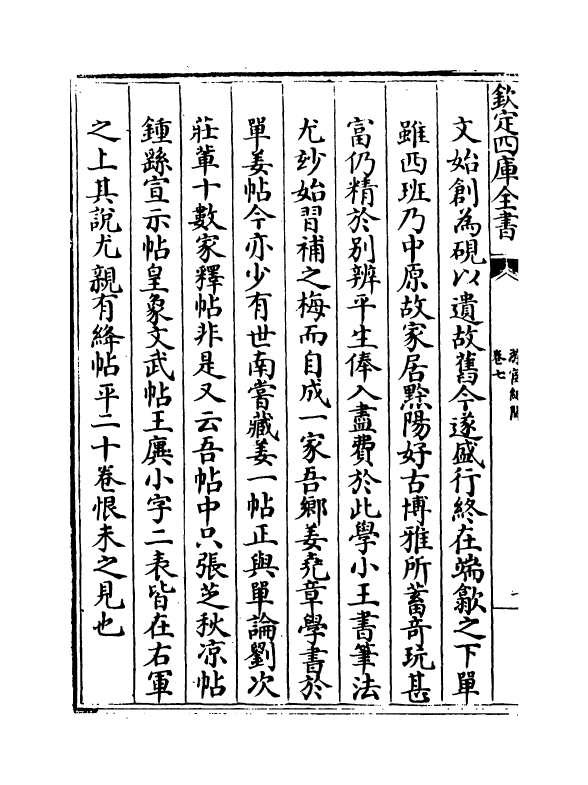 欽定四庫全書
游宦紀聞
卷七
文始創為硯以遺故舊今遂盛行終在端歙之下單
雖西班乃中原故家居黟陽好古博雅所蓄奇玩甚
富仍精於別辨平生俸入盡費於此學小王書筆法
尤玅始習補之梅而自成一家吾鄉姜堯章學書於
單姜帖今亦少有世南嘗藏姜一帖正與單論劉次
莊輩十數家釋帖非是又云吾帖中只張芝秋凉帖
鍾繇宣示帖皇象文武帖王廙小字二表皆在右軍
之上其說尤親有絳帖平二十卷恨未之見也